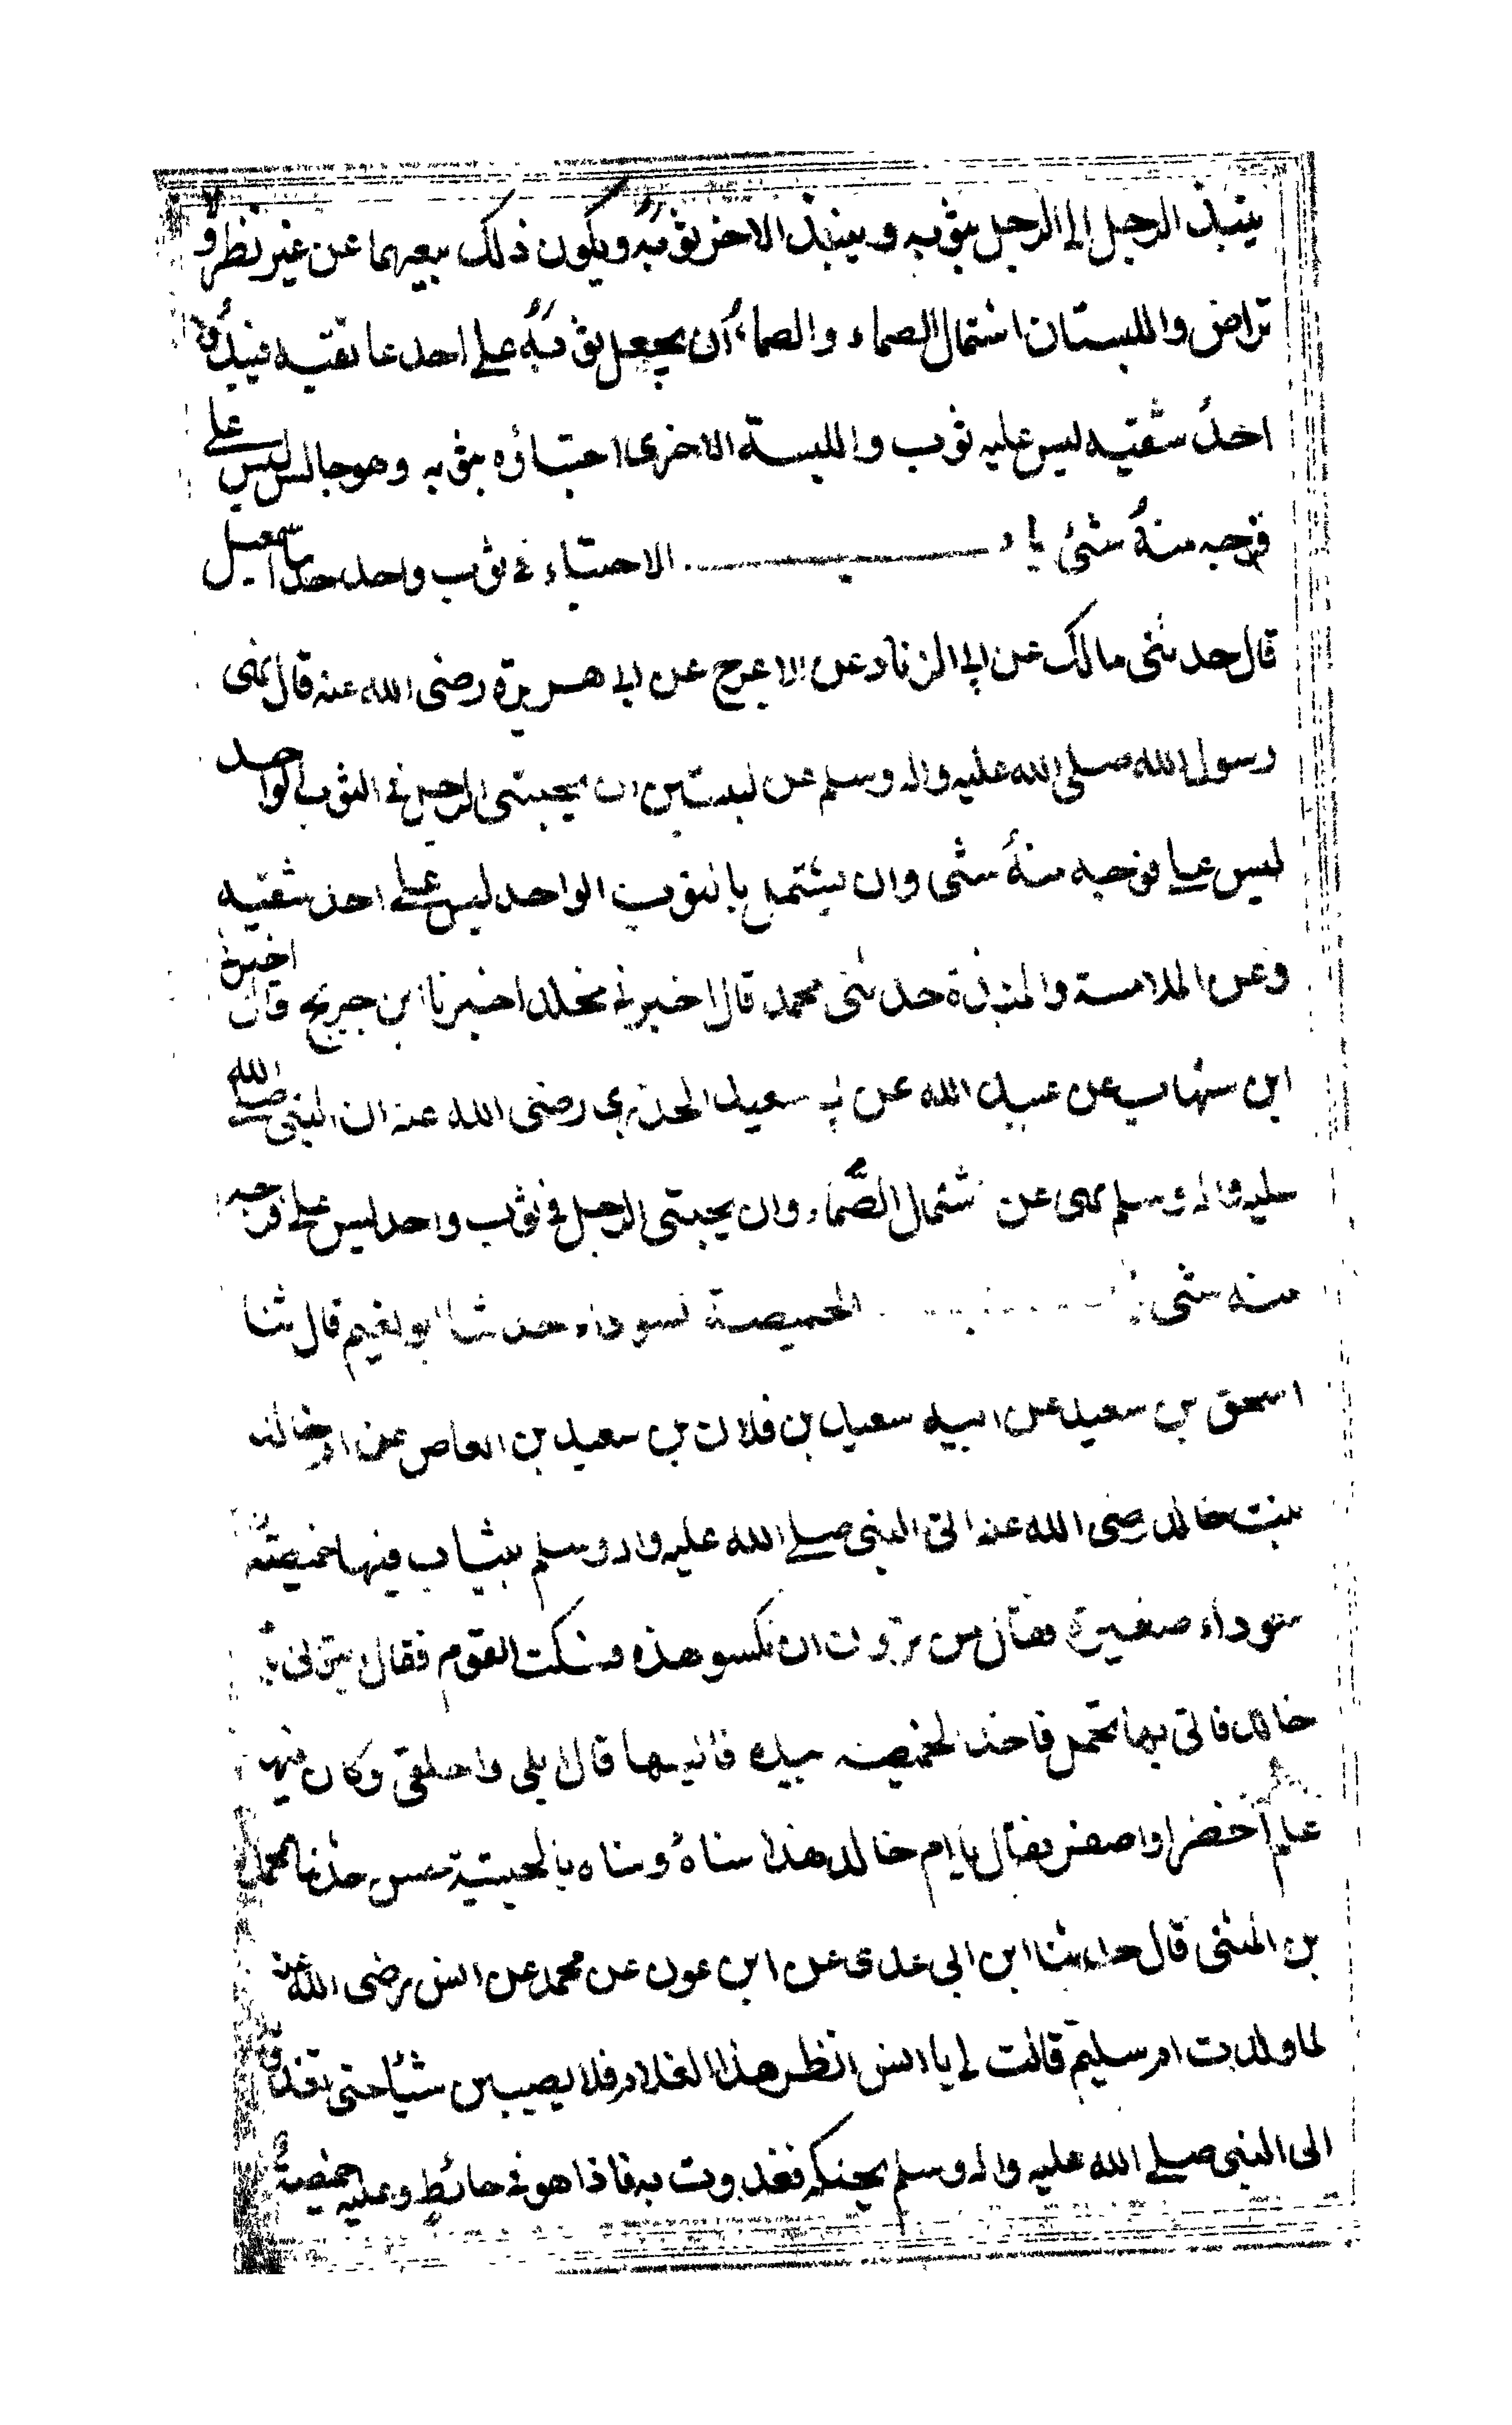 ينبذ الرجل إلى الرجل بثوبه وينبذ الاخر ثوبه ويكون ذلك بيعهما عن غير نظر ولا
تراض واللبستان اشتمال الصماء والصماء أن يجعل ثوبه على احد عاتقيه فيبدو
احد شقيه ليس عليه ثوب واللبسة الاخرى احتباؤه بثوبه وهو جالس ليس على
فرجه منه شئ باب الاحتباء في ثوب واحد حدثنا اسمعيل
قال حدثنى مالك عن ابي الزناد عن الاعرج عن ابي هريرة رضى الله عنه قال نهى
رسول الله صلى الله عليه واله وسلم عن لبستين ان يحبتى الرجل في الثوب الواحد
ليس على فرجه منه شى وان يشتمل بالثوب الواحد ليس على احد شقيه
وعن الملامسة والمنبذة حدثنى محمد قال اخبرني مخلد اخبرنا ابن جريج قال اخبرني
ابن شهاب عن عبيد الله عن ابي سعيد الخدري رضى الله عنه ان النبى صلى الله
عليه واله وسلم نهى عن اشتمال الصماء وان يحبتى الرجل في ثوب واحد ليس على فرجه
منه شى باب الخميصة السوداء حدثنا ابو نعيم قال ثنا
اسحق بن سعيد عن ابيه سعيد بن فلان بن سعيد بن العاص عن ام خالد
بنت خالد رضى الله عنه اتى النبى صلى الله عليه واله وسلم بثياب فيها خميصة
سوداء صغيرة فقال من ترون ان نكسو هذه فسكت القوم فقال ايتونى بام
خالد فاتى بها تحمل فاخذ الخميصة بيده فالبسها قال ابلى واخلقى وكان فيها
علم أخضر او اصفر فقال يا ام خالد هذا سناه وسناه بالحبشية حسن حدثنا محمد
بن المثنى قال حدثنا ابن ابى عدى عن ابن عون عن محمد عن انس رضى الله عنه
لما ولدت ام سليم قالت لي يا انس انظر هذا الغلام فلا يصيبن شيئا حتى تغدو به
الى النبى صلى الله عليه واله وسلم يحنكه فغدوت به فاذا هو في حائط وعليه خميصة